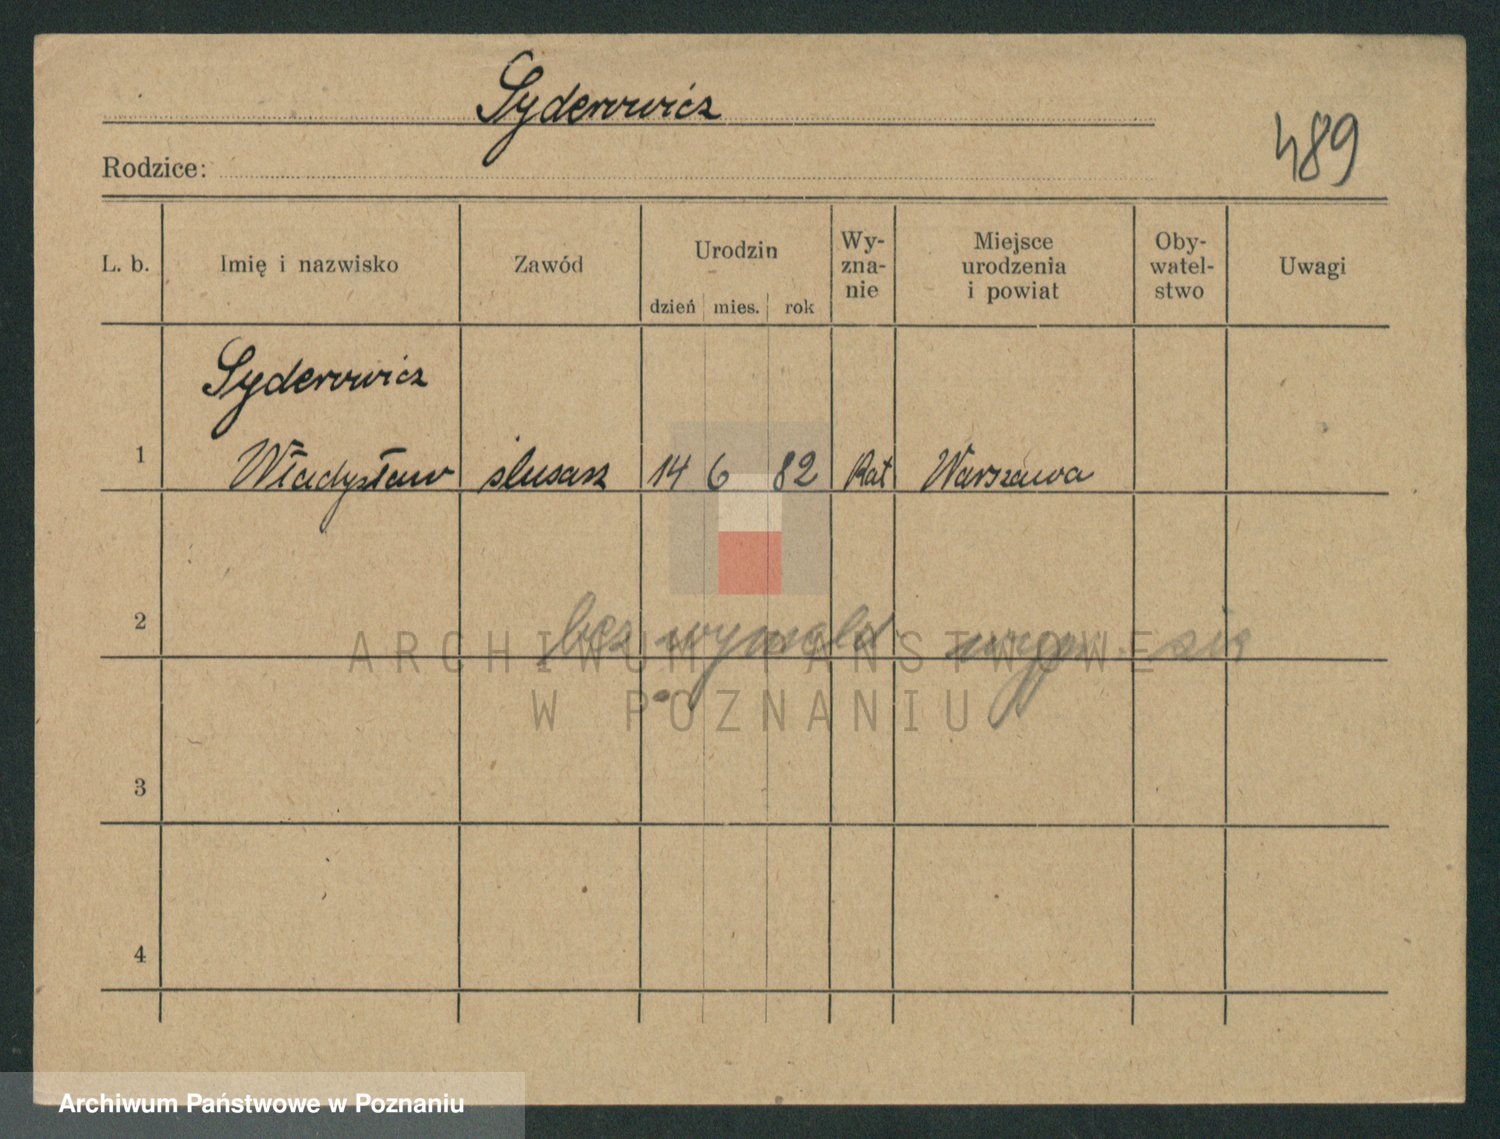 Syderowicz
489
Rodzice:
L. b. Imię i nazwisko Zawód Urodzin dzień mies. rok Wy-zna-nie Miejsce urodzenia i powiat Oby-watel-stwo Uwagi
Syderowicz
1 Władysław ślusarz 14 6 82 Kat Warszawa
2 bez wymeld się
ARCHIWUM PAŃSTWOWE
W POZNANIU
3
4
Archiwum Państwowe w Poznaniu